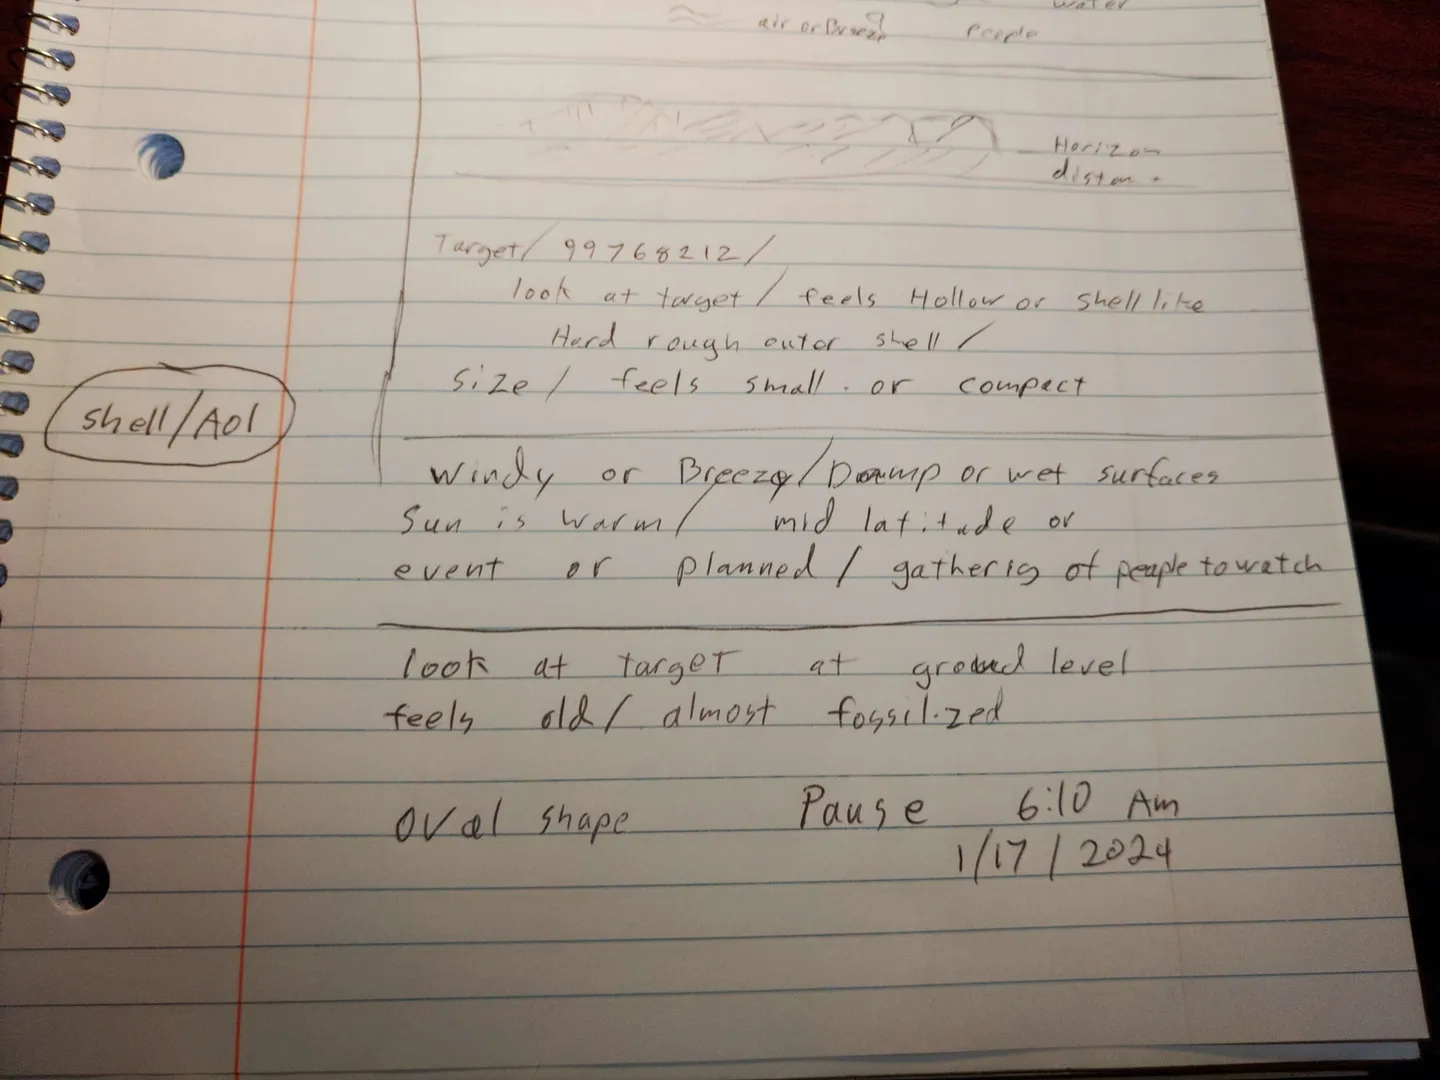 water
air or Breeze
people
Horizon
distan
Target/ 99768212/
look at target/ feels Hollow or shell like
Hard rough outer shell/
size/ feels small. or compact
shell/AOl
windy or Breeze/Damp or wet surfaces
Sun is warm/ mid latitude or
event or planned/ gatherig of people to watch
look at target at ground level
feels old/ almost fossilized
oval shape Pause 6:10 Am
1/17/2024